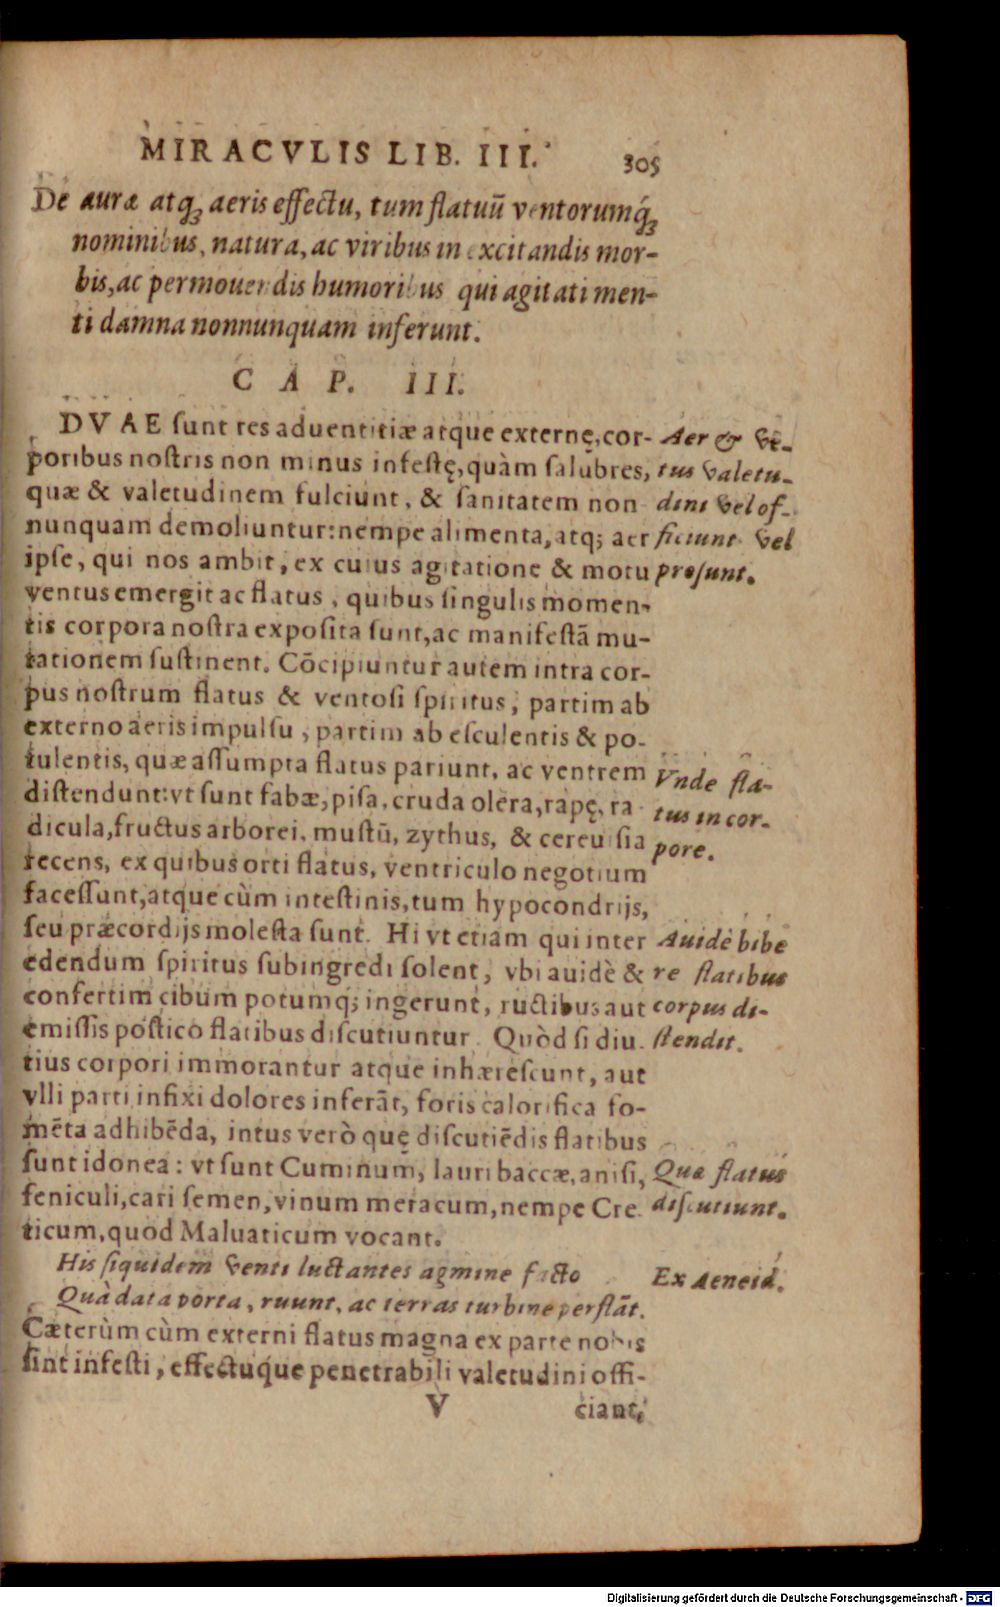 MIRACVLIS LIB. III. 305
De auræ atq́ꝫ aeris effectu, tum flatuū ventorumq́ꝫ
nominibus, natura, ac viribus in excitandis mor-
bis, ac permouendis humoribus qui agitati men-
ti damna nonnunquam inferunt.
CAP. III.
DVAE sunt res aduentitiæ atque externę, cor-
poribus nostris non minus infestę, quàm salubres,
quæ & valetudinem fulciunt, & sanitatem non
nunquam demoliuntur: nempe alimenta, atq; aer
ipse, qui nos ambit, ex cuius agitatione & motu
ventus emergit ac flatus, quibus singulis momen-
tis corpora nostra exposita sunt, ac manifestā mu-
tationem sustinent. Cōcipiuntur autem intra cor-
pus nostrum flatus & ventosi spiritus, partim ab
externo aeris impulsu, partim ab esculentis & po-
tulentis, quæ assumpta flatus pariunt, ac ventrem
distendunt: vt sunt fabæ, pisa, cruda olera, rapę, ra-
dicula, fructus arborei, mustū, zythus, & cereuisia
recens, ex quibus orti flatus, ventriculo negotium
facessunt, atque cùm intestinis, tum hypocondrijs,
seu præcordijs molesta sunt. Hi vt etiam qui inter
edendum spiritus subingredi solent, vbi auidè &
confertim cibum potumq; ingerunt, ructibus aut
emissis postico flatibus discutiuntur. Quòd si diu-
tius corpori immorantur atque inhærescunt, aut
vlli parti infixi dolores inferāt, foris calorifica fo-
mēta adhibēda, intus verò quę discutiēdis flatibus
sunt idonea: vt sunt Cuminum, lauri baccæ, anisi,
feniculi, cari semen, vinum meracum, nempe Cre-
ticum, quod Maluaticum vocant.
His siquidem venti luctantes agmine facto
Quà data porta, ruunt, ac terras turbine perflāt.
Cæterùm cùm externi flatus magna ex parte nobis
sint infesti, effectuque penetrabili valetudini offi-
V ciant,
Aer & vē-
tus valetu-
dini vel of-
ficiunt vel
prosunt.
Vnde fla-
tus in cor-
pore.
Auidè bibe
re flatibus
corpus di-
stendit.
Quæ flatus
discutiunt.
Ex Aeneid.
Digitalisierung gefördert durch die Deutsche Forschungsgemeinschaft - DFG